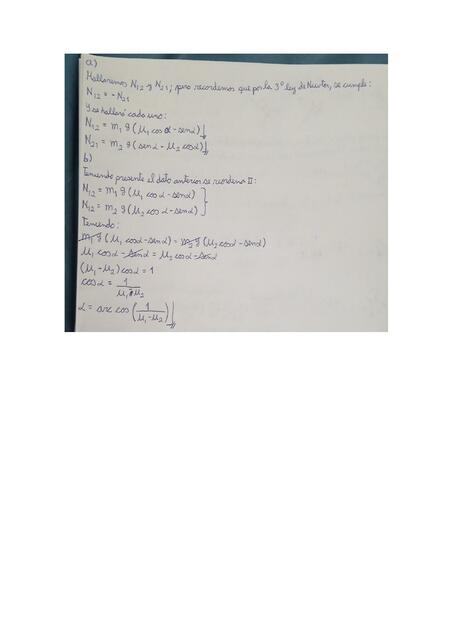 a)
Hallaremos N₁₂ y N₂₁; pero recordemos que por la 3º ley de Newton, se cumple:
N₁₂ = - N₂₁
Y se hallará cada uno:
N₁₂ = m₁ g (μ₁ cos α - sen α)
N₂₁ = m₂ g (sen α - μ₂ cos α)
b)
Teniendo presente el dato anterior se reordena II:
N₁₂ = m₁ g (μ₁ cos α - sen α)
N₁₂ = m₂ g (μ₂ cos α - sen α)
Teniendo:
m₁ g (μ₁ cos α - sen α) = m₂ g (μ₂ cos α - sen α)
μ₁ cos α - sen α = μ₂ cos α - sen α
(μ₁ - μ₂) cos α = 1
cos α = 1 / μ₁ - μ₂
α = arc cos (1 / μ₁ - μ₂)